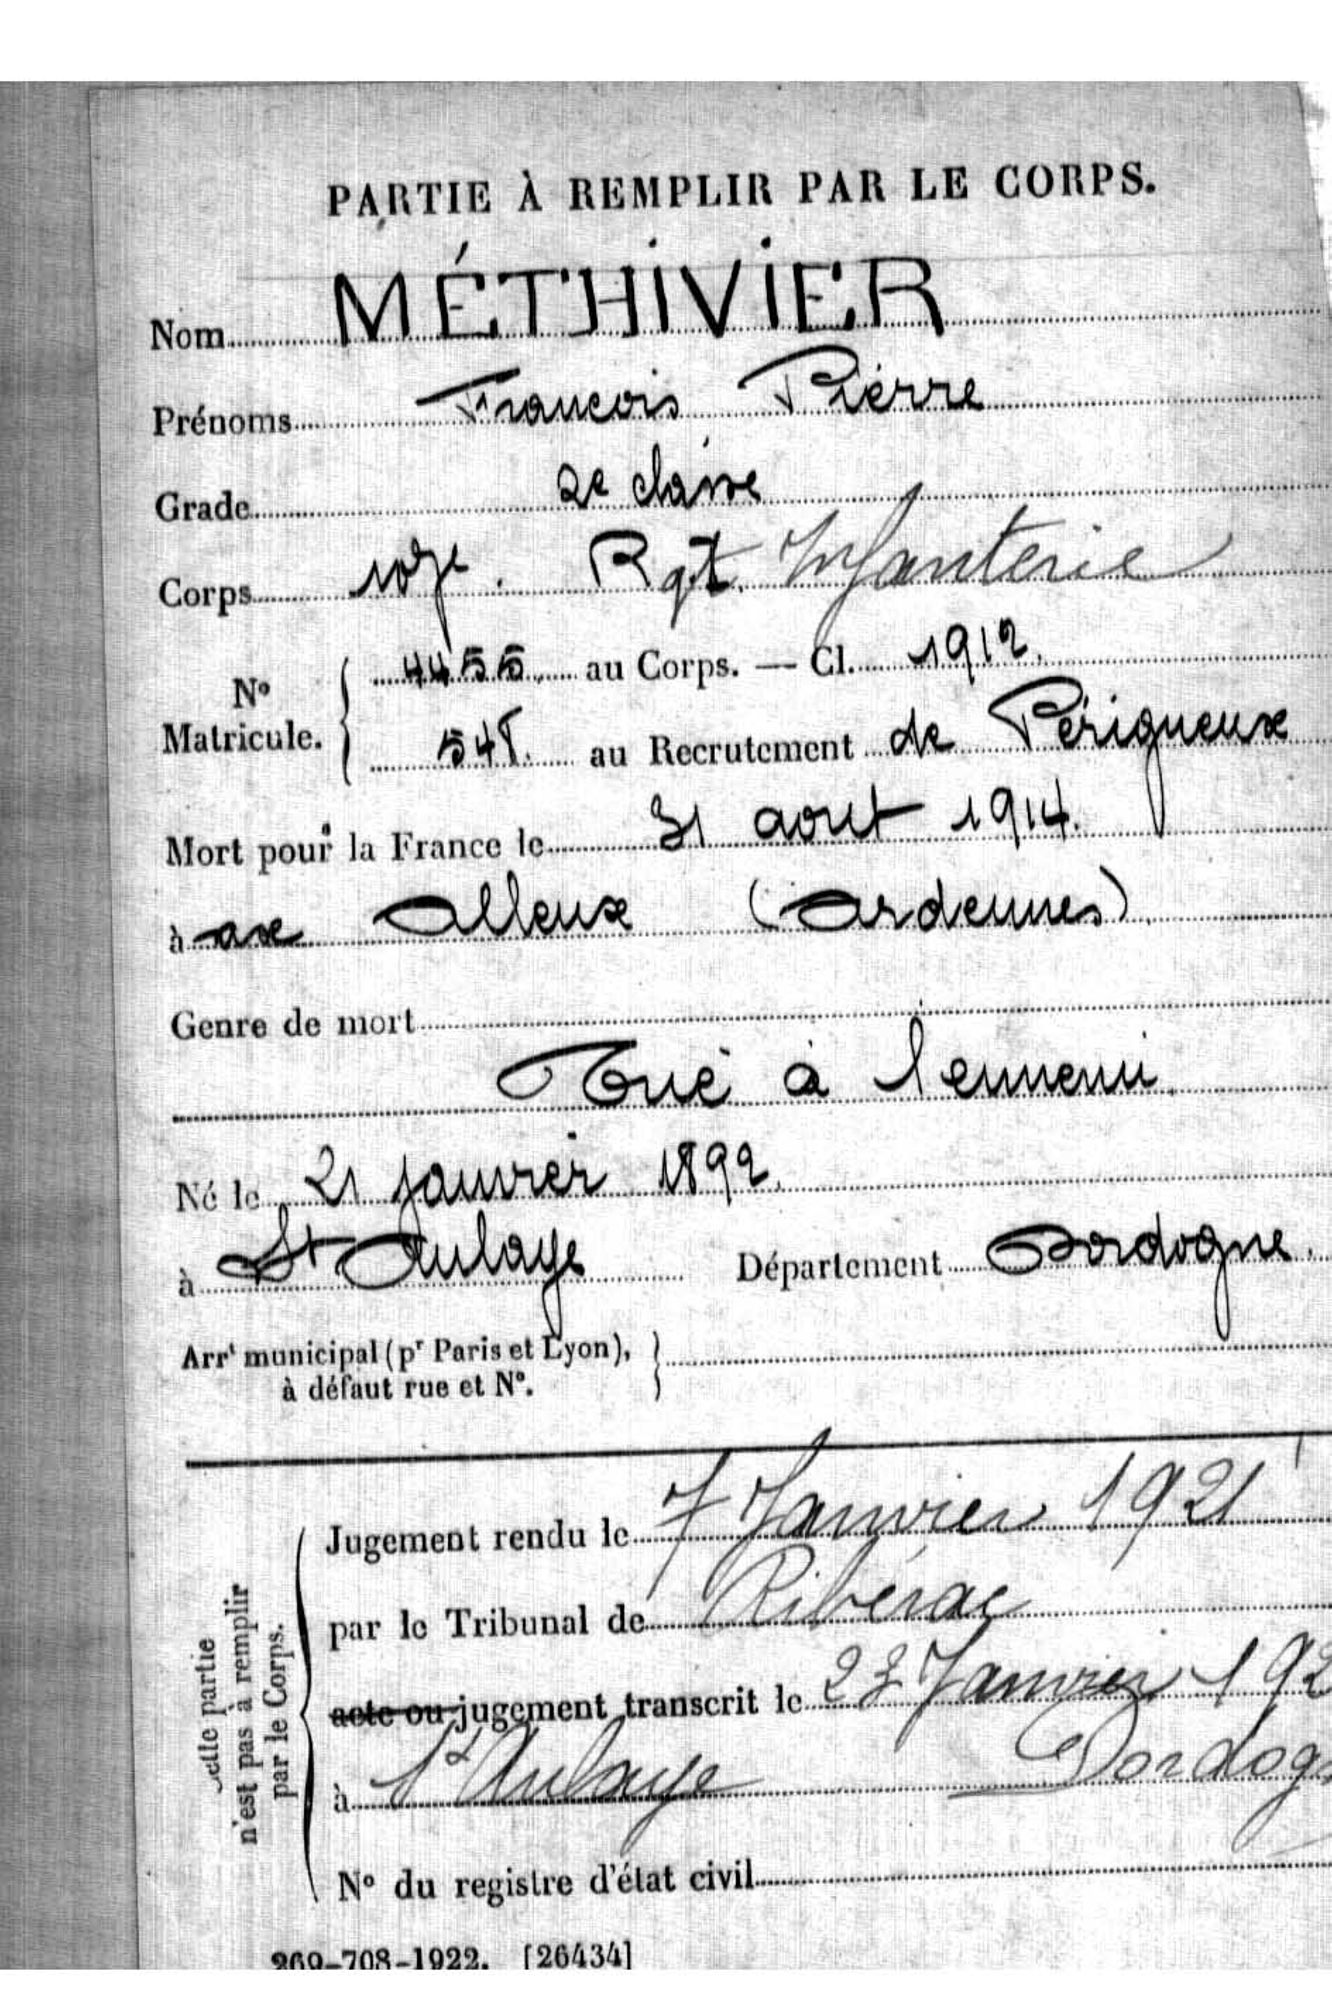 PARTIE À REMPLIR PAR LE CORPS.
Nom MÉTHIVIER
Prénoms François Pierre
Grade 2e classe
Corps 107e. Rgt. Infanterie
N° Matricule. { 4455. au Corps. — Cl. 1912.
548. au Recrutement de Périgueux
Mort pour la France le 31 aout 1914.
à ax Alleux (Ardennes).
Genre de mort
Tué à lennemi.
Né le 21 janvier 1892.
à St Aulaye Département Dordogne.
Arrt municipal (pr Paris et Lyon), }
à défaut rue et N°.
Jugement rendu le 7 Janvier 1921
par le Tribunal de Ribérac
acte ou jugement transcrit le 23 Janvier 192
à St Aulaye Dordog
N° du registre d'état civil
Cette partie
n'est pas à remplir
par le Corps.
269-708-1922. [26434]